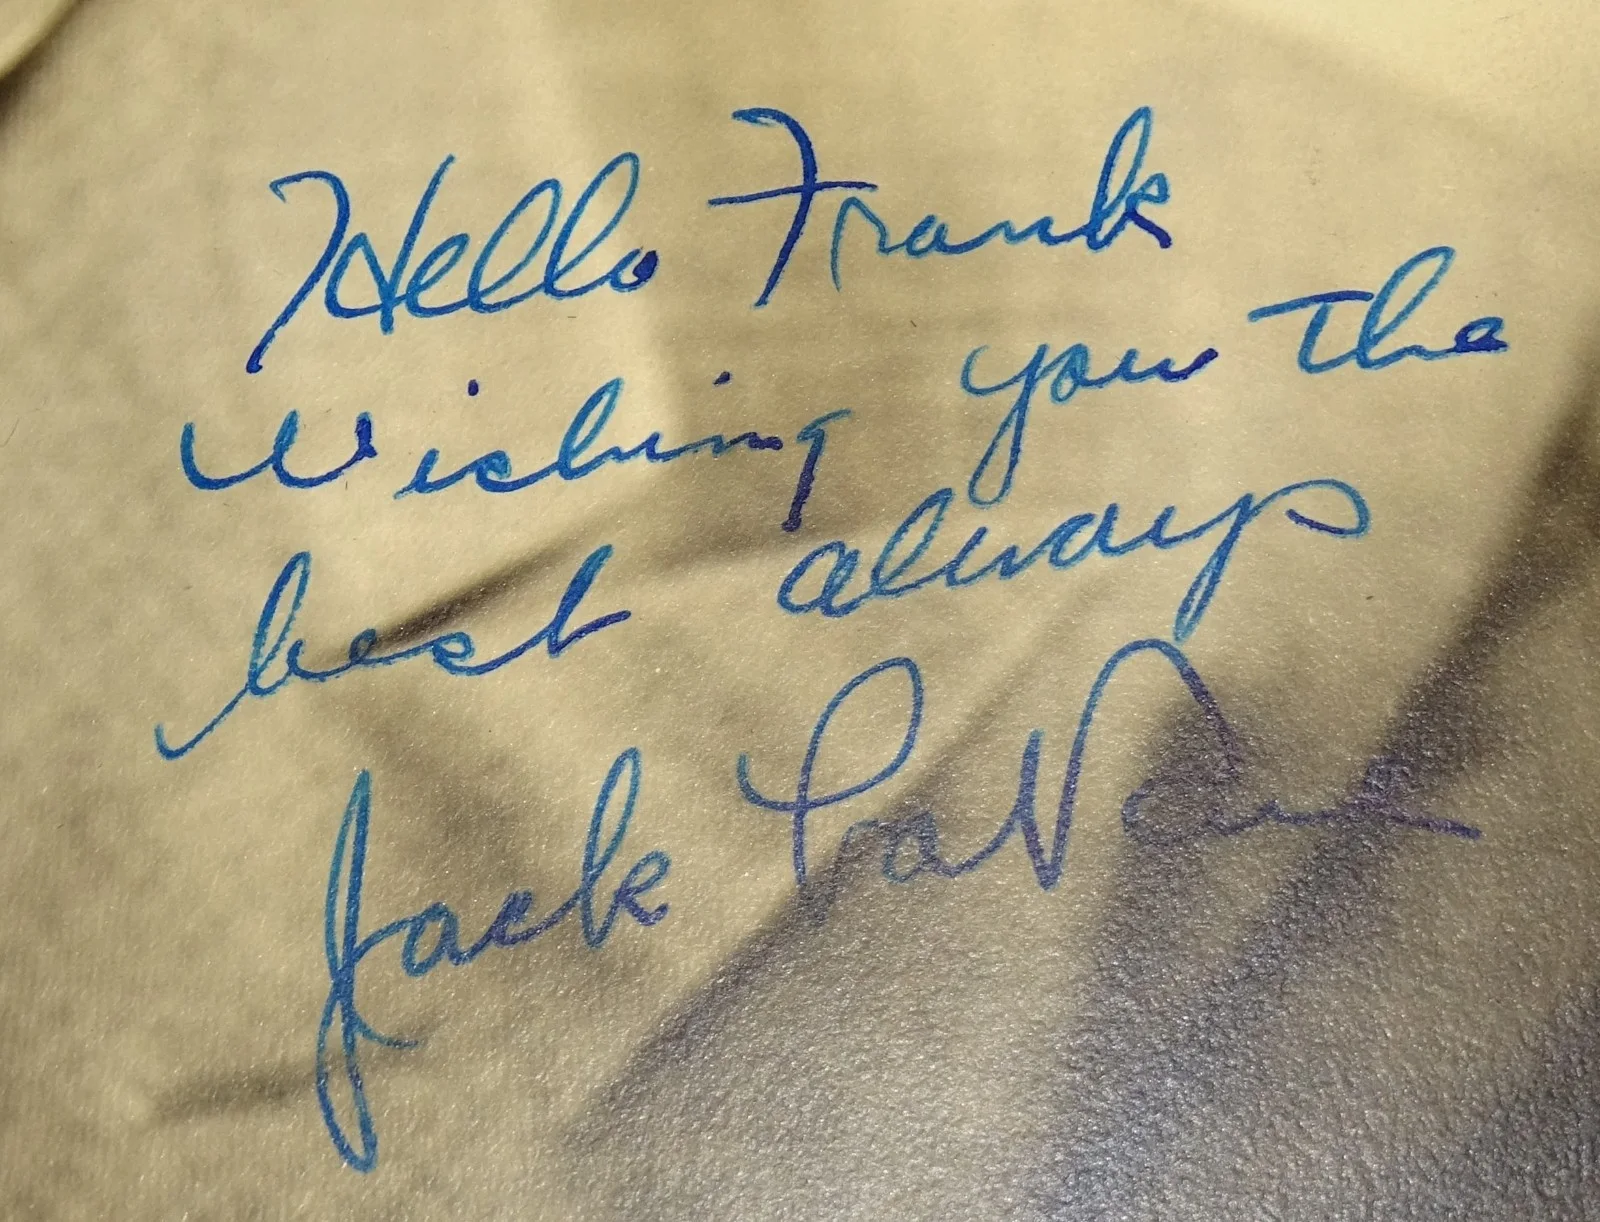 Hello Frank
Wishing you the
best always
Jack